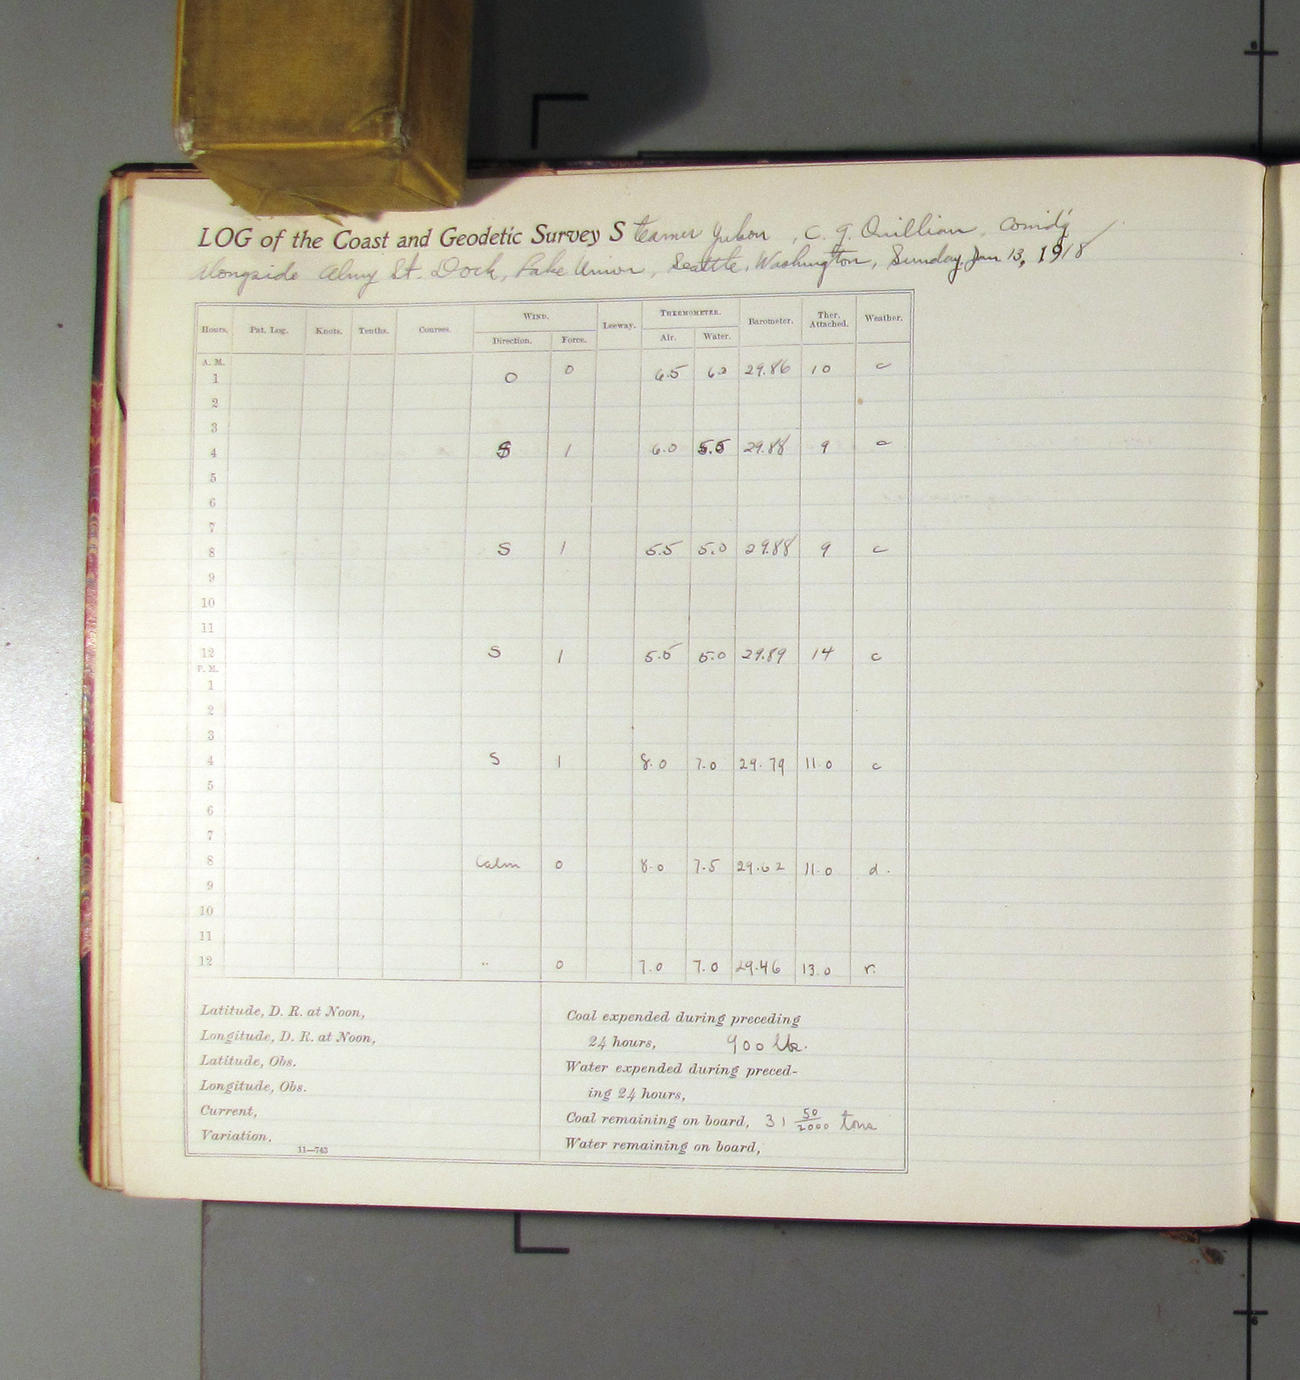 LOG of the Coast and Geodetic Survey Steamer Yukon, C. G. Quillian, Comd'g
Alongside Almy St. Dock, Lake Union, Seattle, Washington, Sunday, Jan 13, 1918
Hours. Pat. Log. Knots. Tenths. Courses. WIND. Leeway. THERMOMETER. Barometer. Ther. Attached. Weather.
Direction. Force. Air. Water.
A. M.
1 0 0 6.5 6.0 29.86 10 c
2
3
4 S 1 6.0 5.5 29.88 9 c
5
6
7
8 S 1 5.5 5.0 29.88 9 c
9
10
11
12 S 1 5.5 5.0 29.89 14 c
P. M.
1
2
3
4 S 1 8.0 7.0 29.79 11.0 c
5
6
7
8 Calm 0 8.0 7.5 29.62 11.0 d.
9
10
11
12 " 0 7.0 7.0 29.46 13.0 r.
Latitude, D. R. at Noon,
Longitude, D. R. at Noon,
Latitude, Obs.
Longitude, Obs.
Current,
Variation.
11—743
Coal expended during preceding
24 hours, 900 lbs.
Water expended during preced-
ing 24 hours,
Coal remaining on board, 31 50/2000 tons
Water remaining on board,